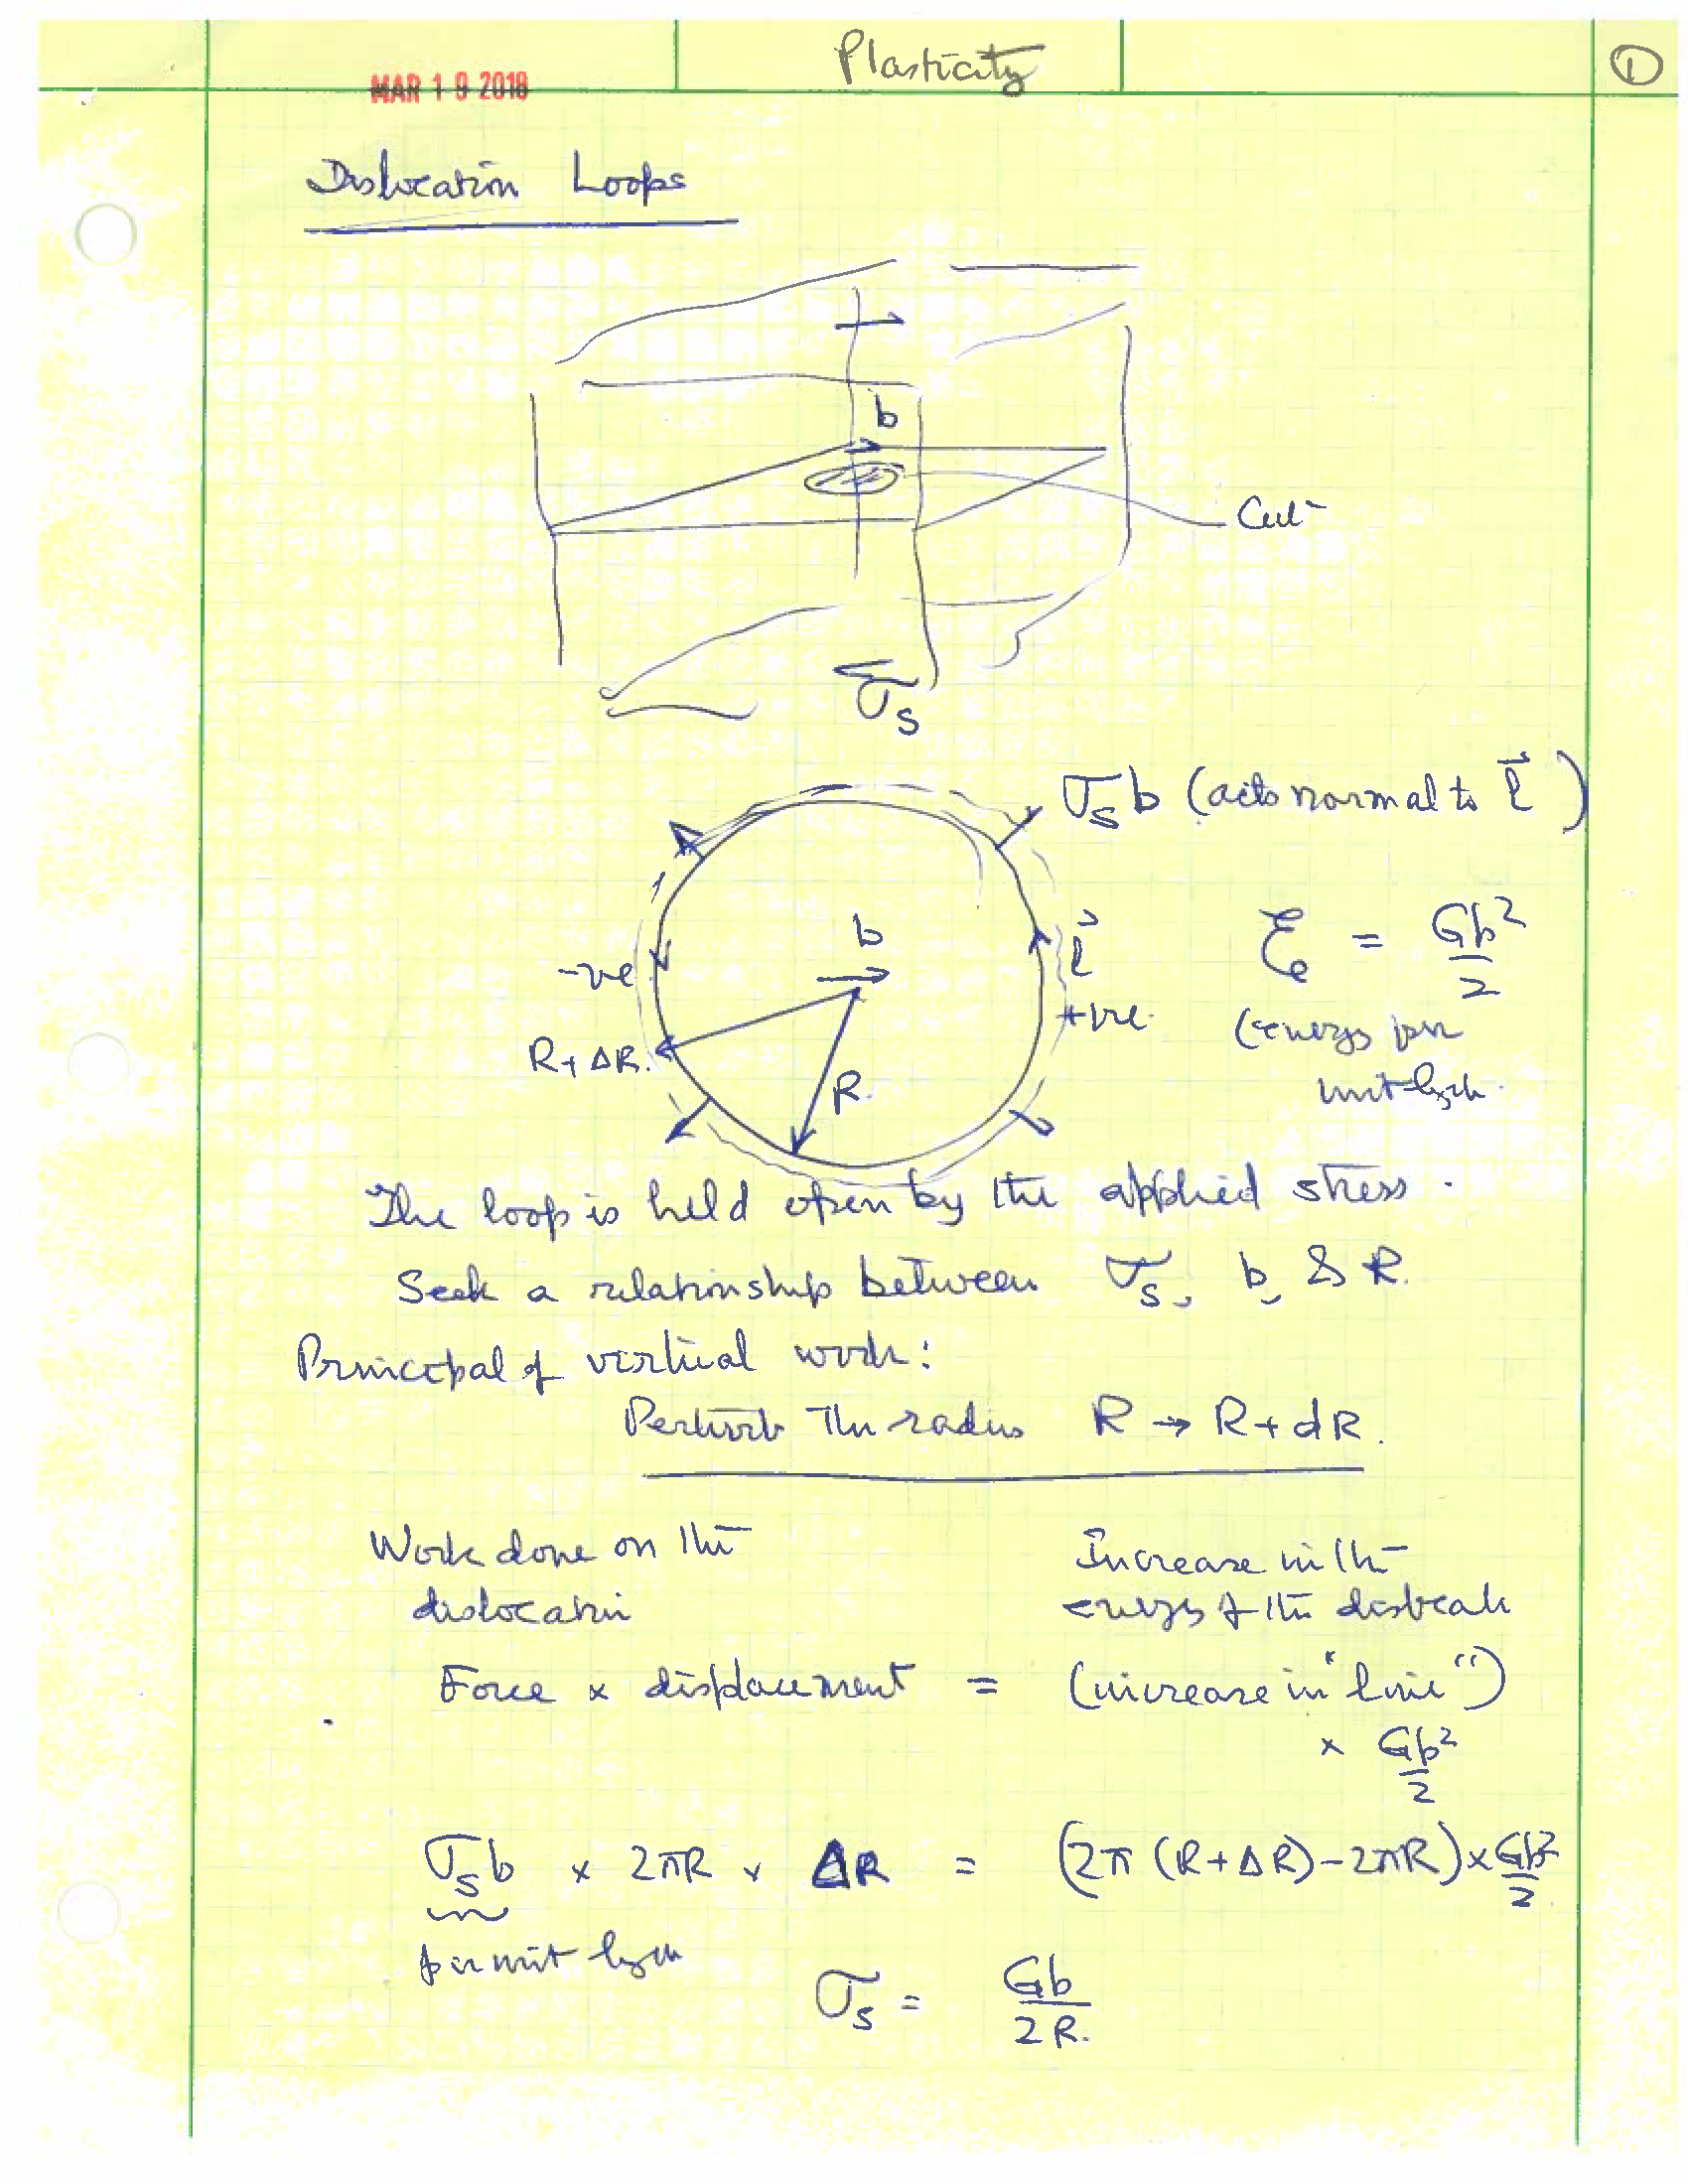 Plasticity
①
MAR 19 2018
Dislocation Loops
b
Cut
σs
σs b (acts normal to l⃗)
b
-ve
l⃗
+ve.
ξe = Gb²/2
(energy per
unit lgth.
R+ΔR.
R.
The loop is held open by the applied stress.
Seek a relationship between σs, b, & R.
Principal of virtual work:
Perturb the radius R → R+dR.
Work done on the
dislocation
Increase in the
energy of the
Force × displacement = (increase in "line")
× Gb²/2
σs b × 2πR × ΔR = (2π(R+ΔR)-2πR) × Gb²/2
per unit lgth
σs = Gb/2R.